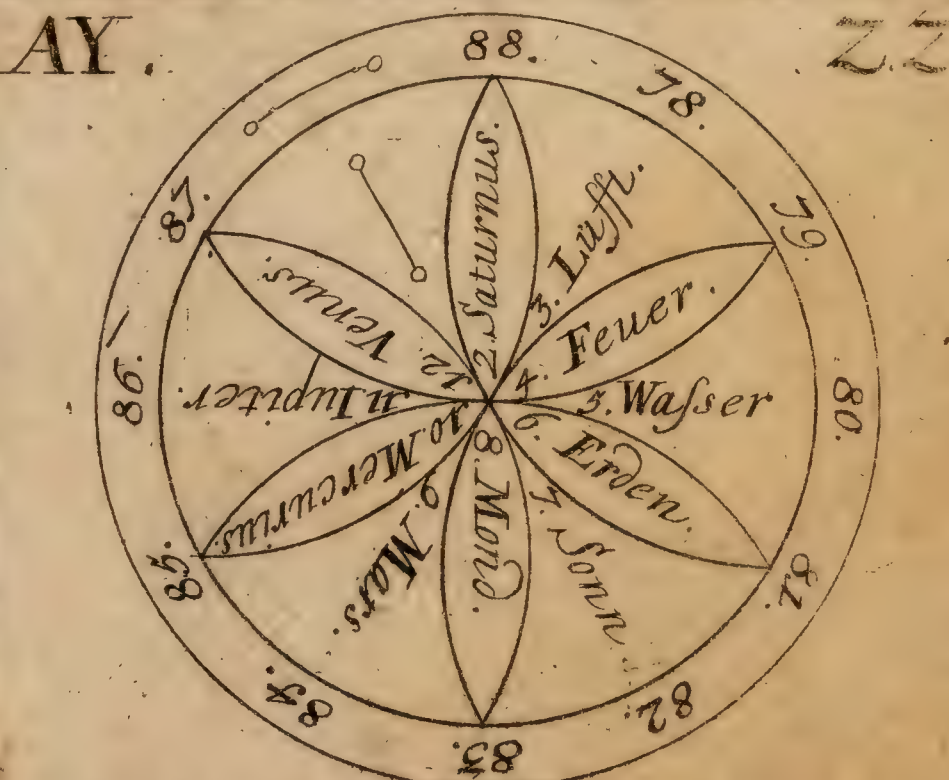 AY.
Z.Z
88.
78.
79.
80.
81.
82.
83.
84.
85.
86.
87.
2. Saturnus.
3. Lüfft.
4. Feuer.
5. Wasser
6. Erden.
7. Sonn.
8. Mond.
9. Mars.
10. Mercurius.
11. Iupiter.
12. Venus.